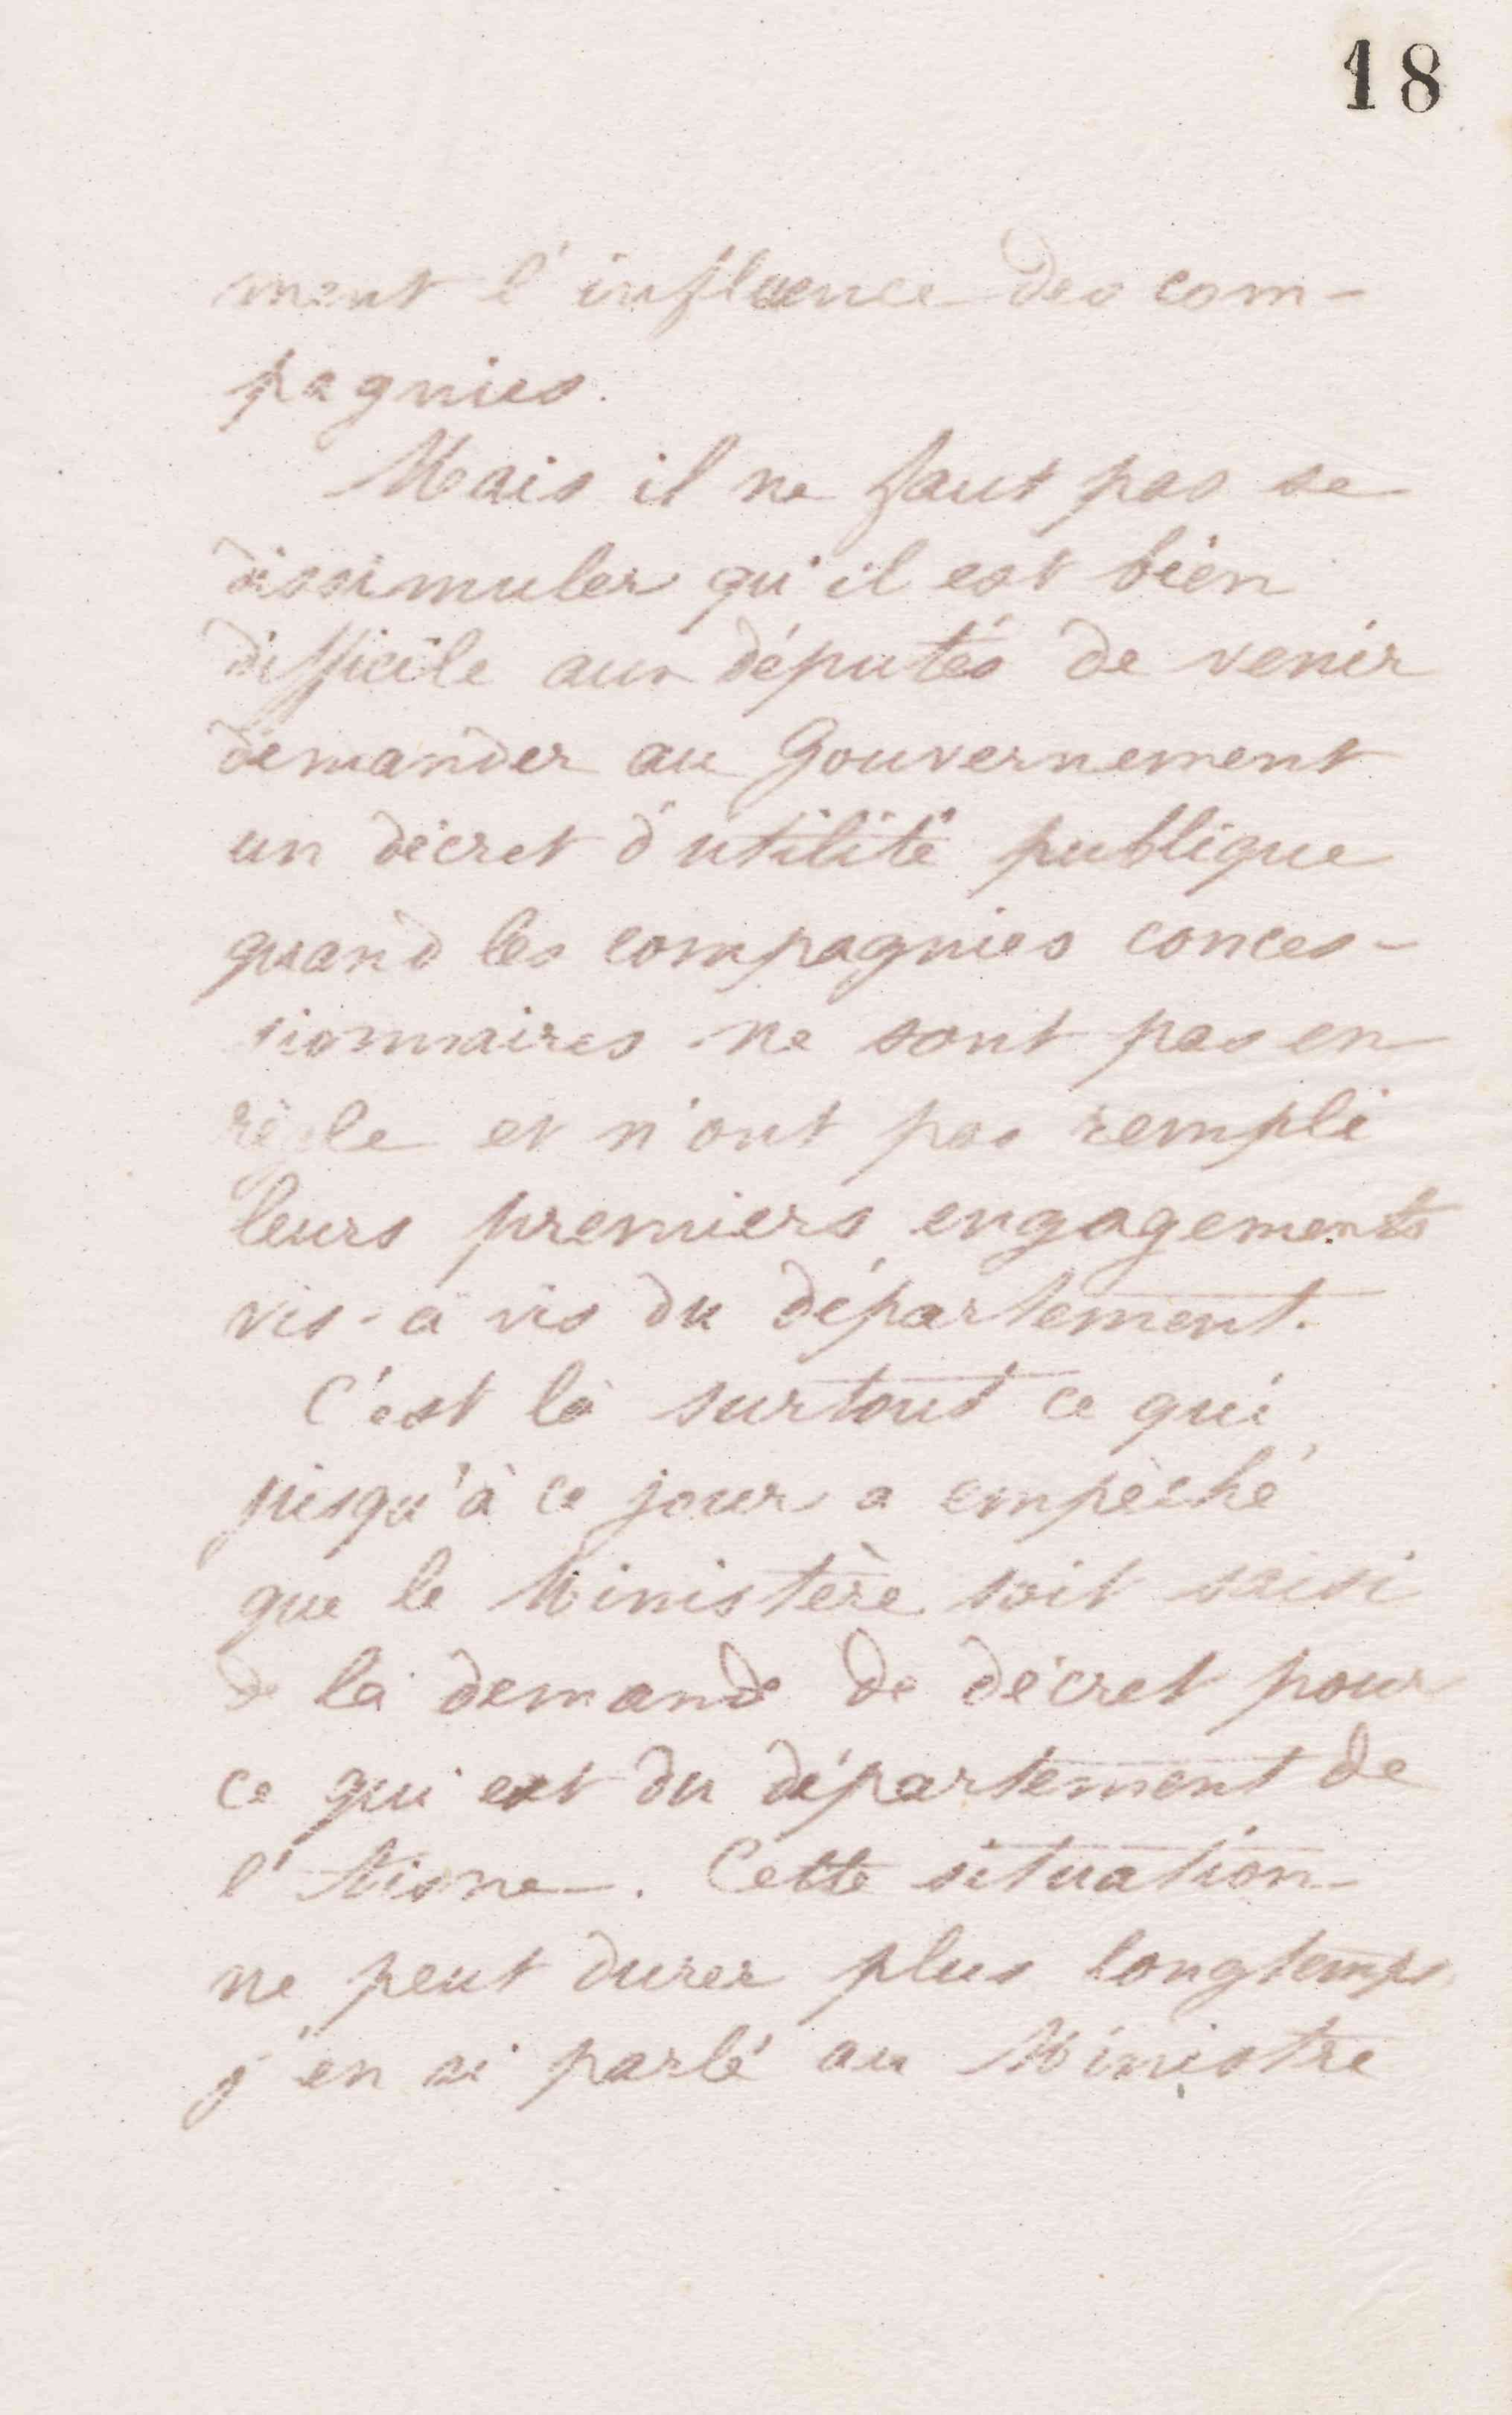 18
ment l'influence des com-
pagnies.
Mais il ne faut pas se
dissimuler qu'il est bien
difficile aux députés de venir
demander au Gouvernement
un décret d'utilité publique
quand les compagnies conces-
sionnaires ne sont pas en
règle et n'ont pas rempli
leurs premiers engagements
vis-à vis du département.
C'est là surtout ce qui
jusqu'à ce jour a empêché
que le Ministère soit saisi
de la demande de décret pour
ce qui est du département de
l'Aisne. Cette situation
ne peut durer plus longtemps
j'en ai parlé au Ministre